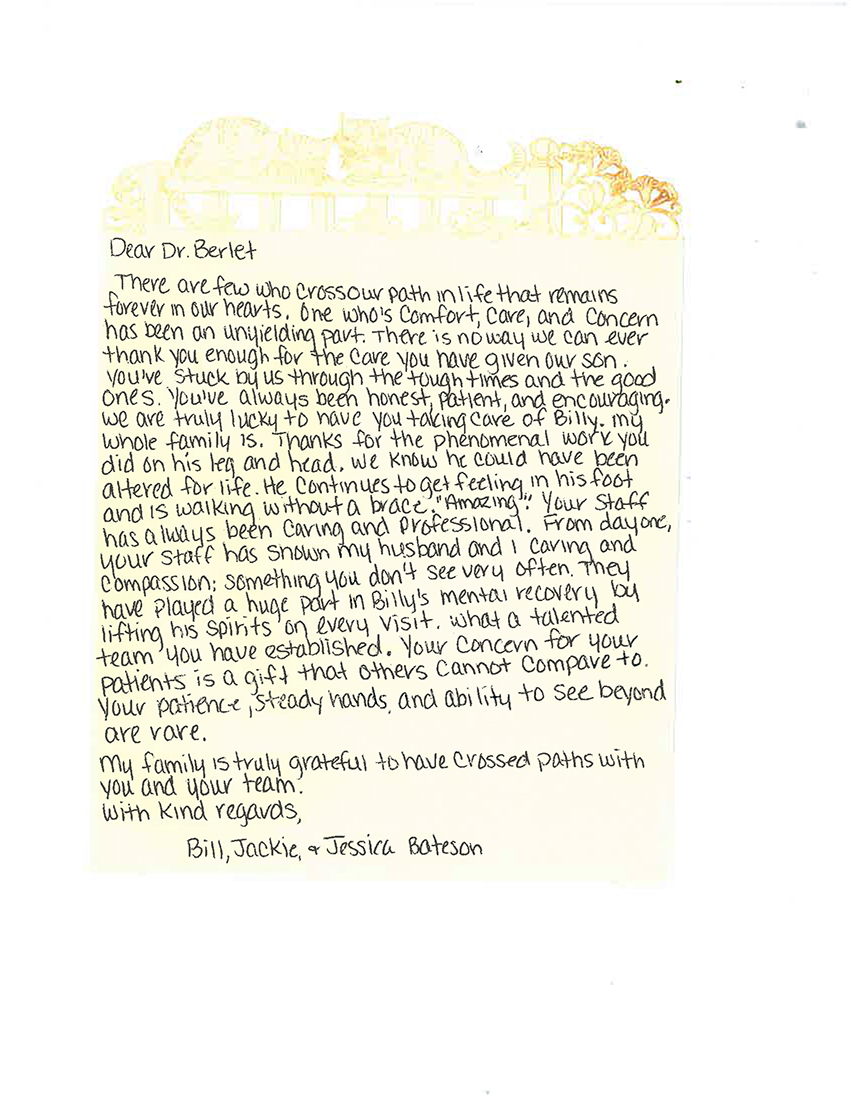 Dear Dr. Berlet
There are few who cross our path in life that remains
forever in our hearts. One who's comfort, care, and concern
has been an unyielding part. There is no way we can ever
thank you enough for the care you have given our son.
You've stuck by us through the tough times and the good
ones. You've always been honest, patient, and encouraging.
We are truly lucky to have you taking care of Billy. My
whole family is. Thanks for the phenomenal work you
did on his leg and head. We know he could have been
altered for life. He continues to get feeling in his foot
and is walking without a brace. "Amazing". Your staff
has always been caring and professional. From day one,
your staff has shown my husband and I caring and
compassion; something you don't see very often. They
have played a huge part in Billy's mental recovery by
lifting his spirits on every visit. What a talented
team you have established. Your concern for your
patients is a gift that others cannot compare to.
Your patience, steady hands, and ability to see beyond
are rare.
My family is truly grateful to have crossed paths with
you and your team.
With kind regards,
Bill, Jackie, + Jessica Bateson